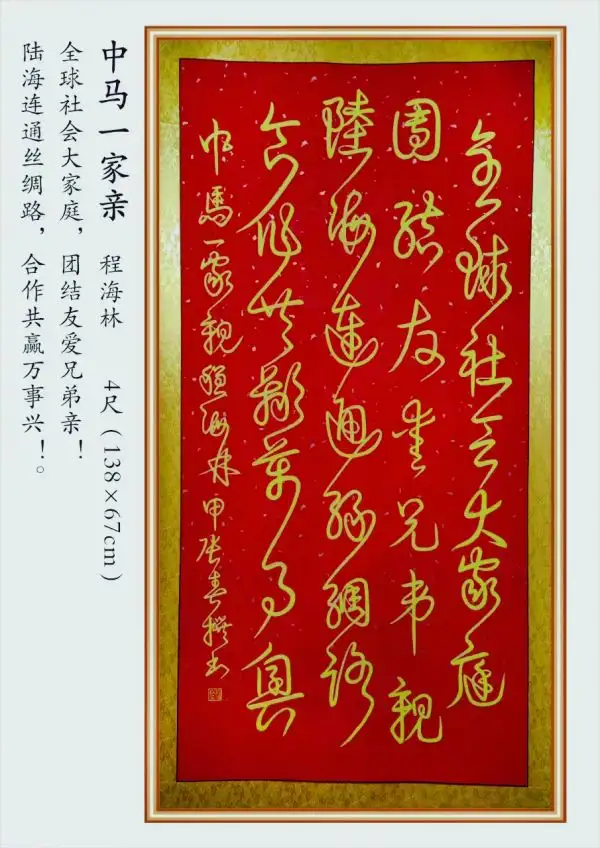 全球社会大家庭
團結友爱兄弟親
陸海連通絲綢路
合作共贏萬事興
中馬一家親程海林甲辰春撰书
中马一家亲 程海林 4尺（138×67cm）
全球社会大家庭，团结友爱兄弟亲！
陆海连通丝绸路，合作共赢万事兴！。